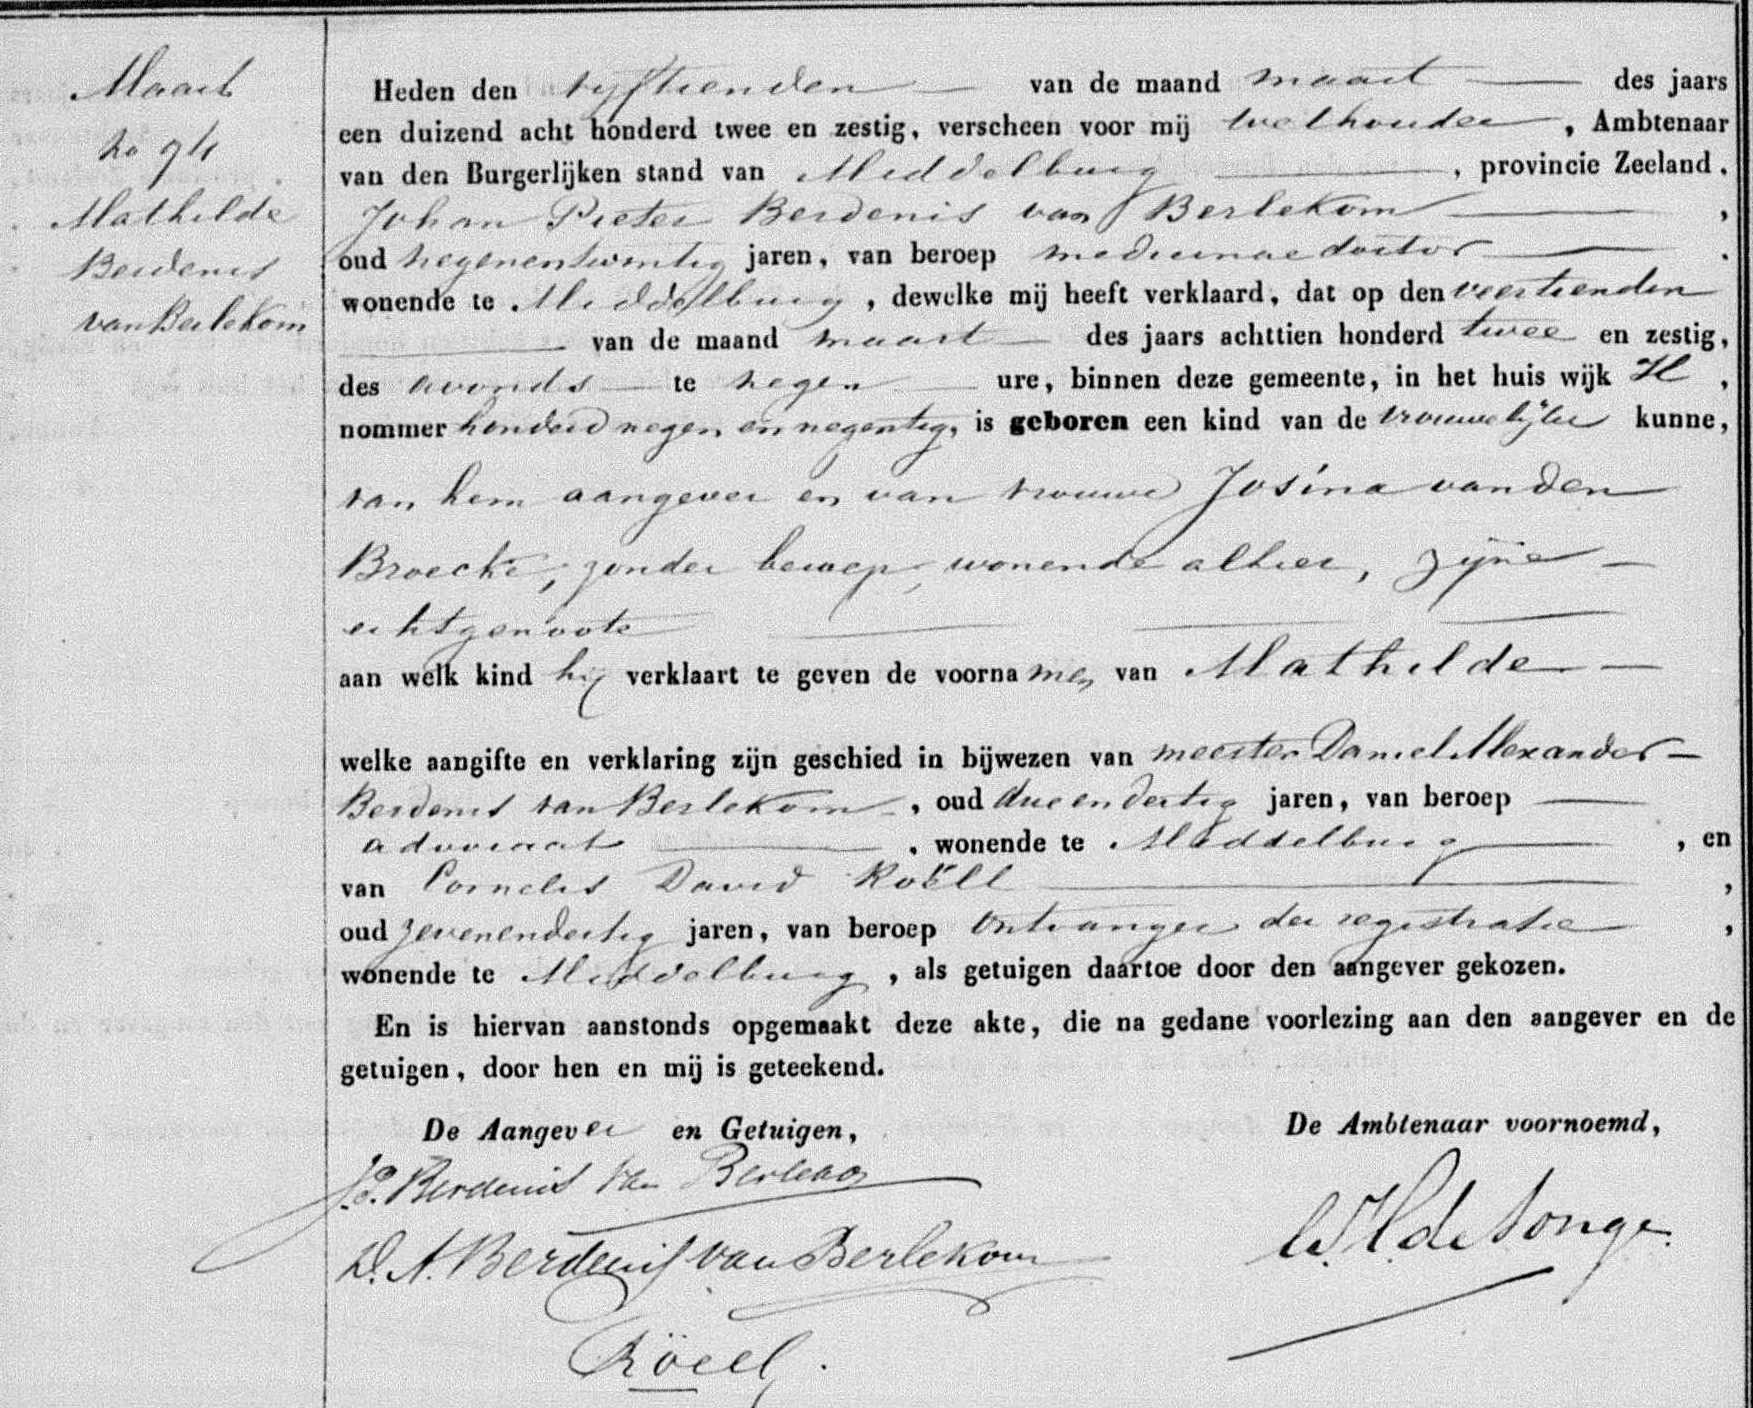 Maart
No 94
Mathilde
Berdenis
van Berlekom
Heden den vyftienden van de maand maart des jaars
een duizend acht honderd twee en zestig, verscheen voor mij wethouder, Ambtenaar
van den Burgerlijken stand van Middelburg, provincie Zeeland.
Johan Pieter Berdenis van Berlekom,
oud negenentwintig jaren, van beroep medicinae doctor.
wonende te Middelburg, dewelke mij heeft verklaard, dat op den veertienden
van de maand maart des jaars achttien honderd twee en zestig,
des avonds te negen ure, binnen deze gemeente, in het huis wijk H,
nommer honderd negen en negentig, is geboren een kind van de vrouwelijke kunne,
van hem aangever en van vrouwe Josina van den
Broecke, zonder beroep, wonende alhier, zijne
echtgenoote
aan welk kind hij verklaart te geven de voornamen van Mathilde
welke aangifte en verklaring zijn geschied in bijwezen van meester Daniel Alexander
Berdenis van Berlekom, oud drieendertig jaren, van beroep
advocaat, wonende te Middelburg, en
van Cornelis David Roëll,
oud zevenendertig jaren, van beroep Ontvanger der registratie,
wonende te Middelburg, als getuigen daartoe door den aangever gekozen.
En is hiervan aanstonds opgemaakt deze akte, die na gedane voorlezing aan den aangever en de
getuigen, door hen en mij is geteekend.
De Aangever en Getuigen,
De Ambtenaar voornoemd,
J.P. Berdenis van Berlekom
D. A. Berdenis van Berlekom
de Jonge.
Röell.